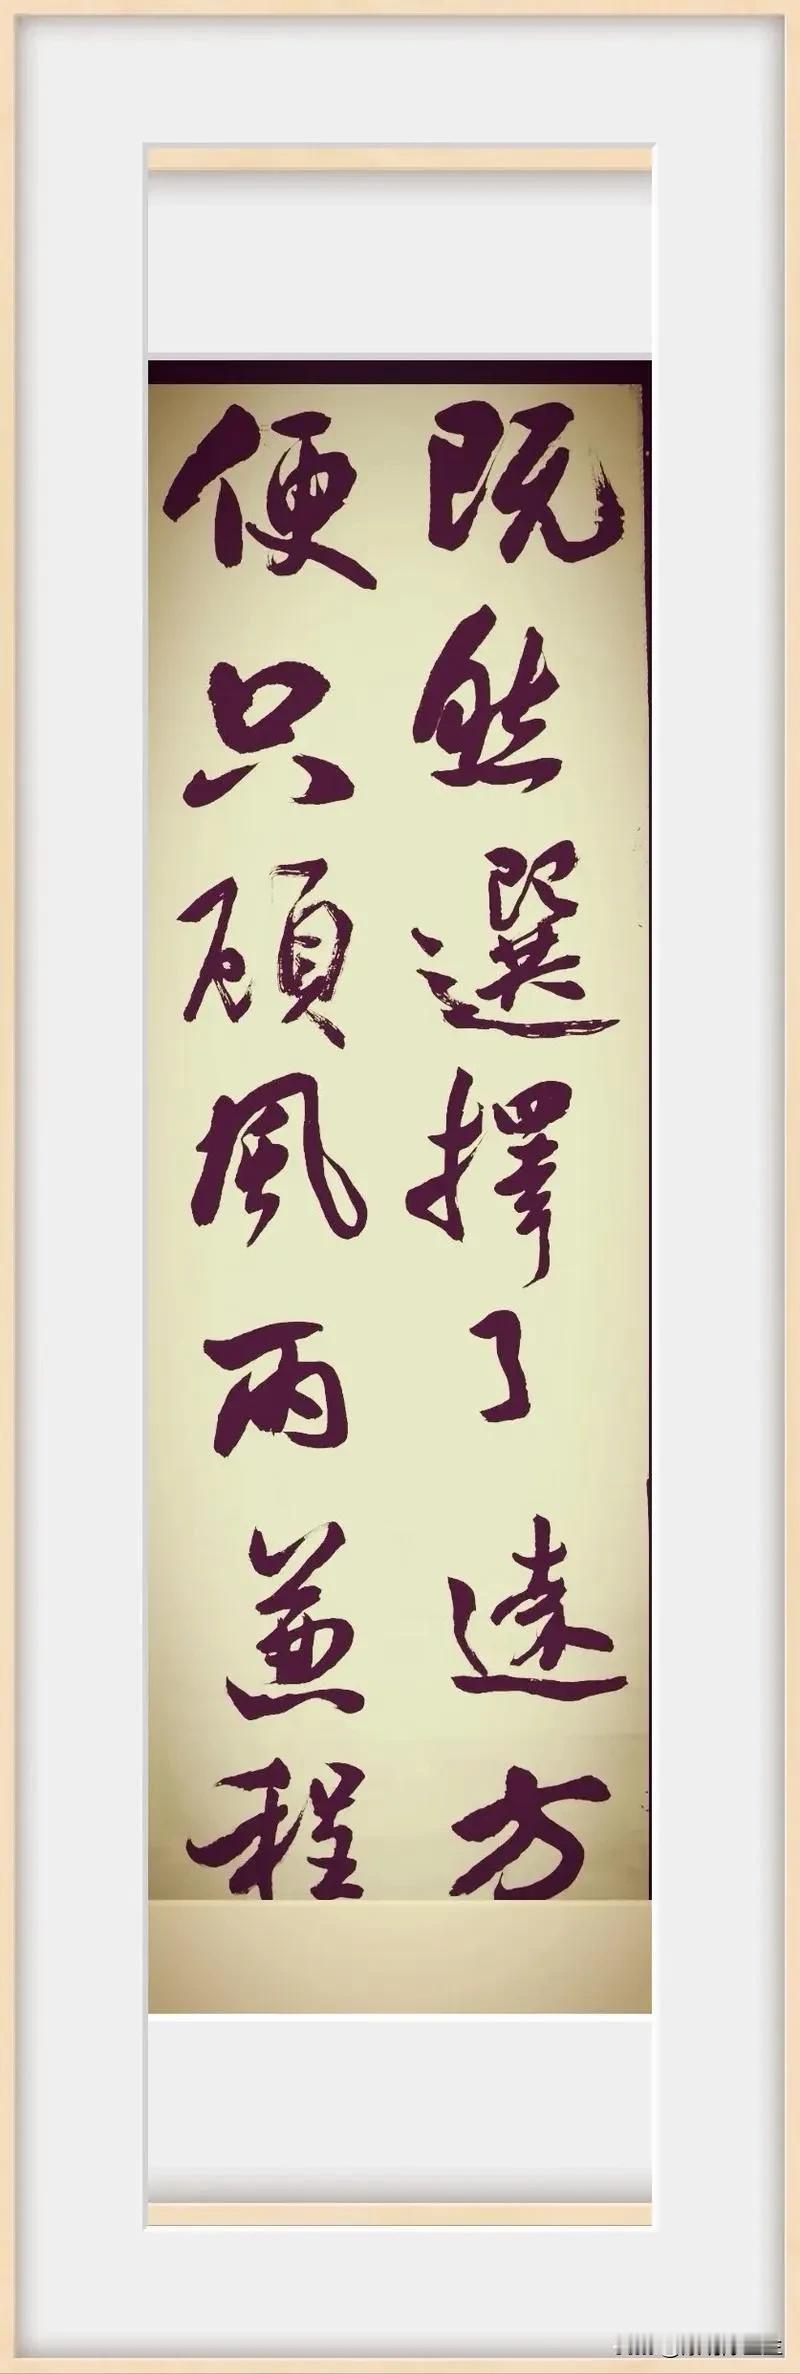 既然選擇了遠方
便只顾風雨兼程